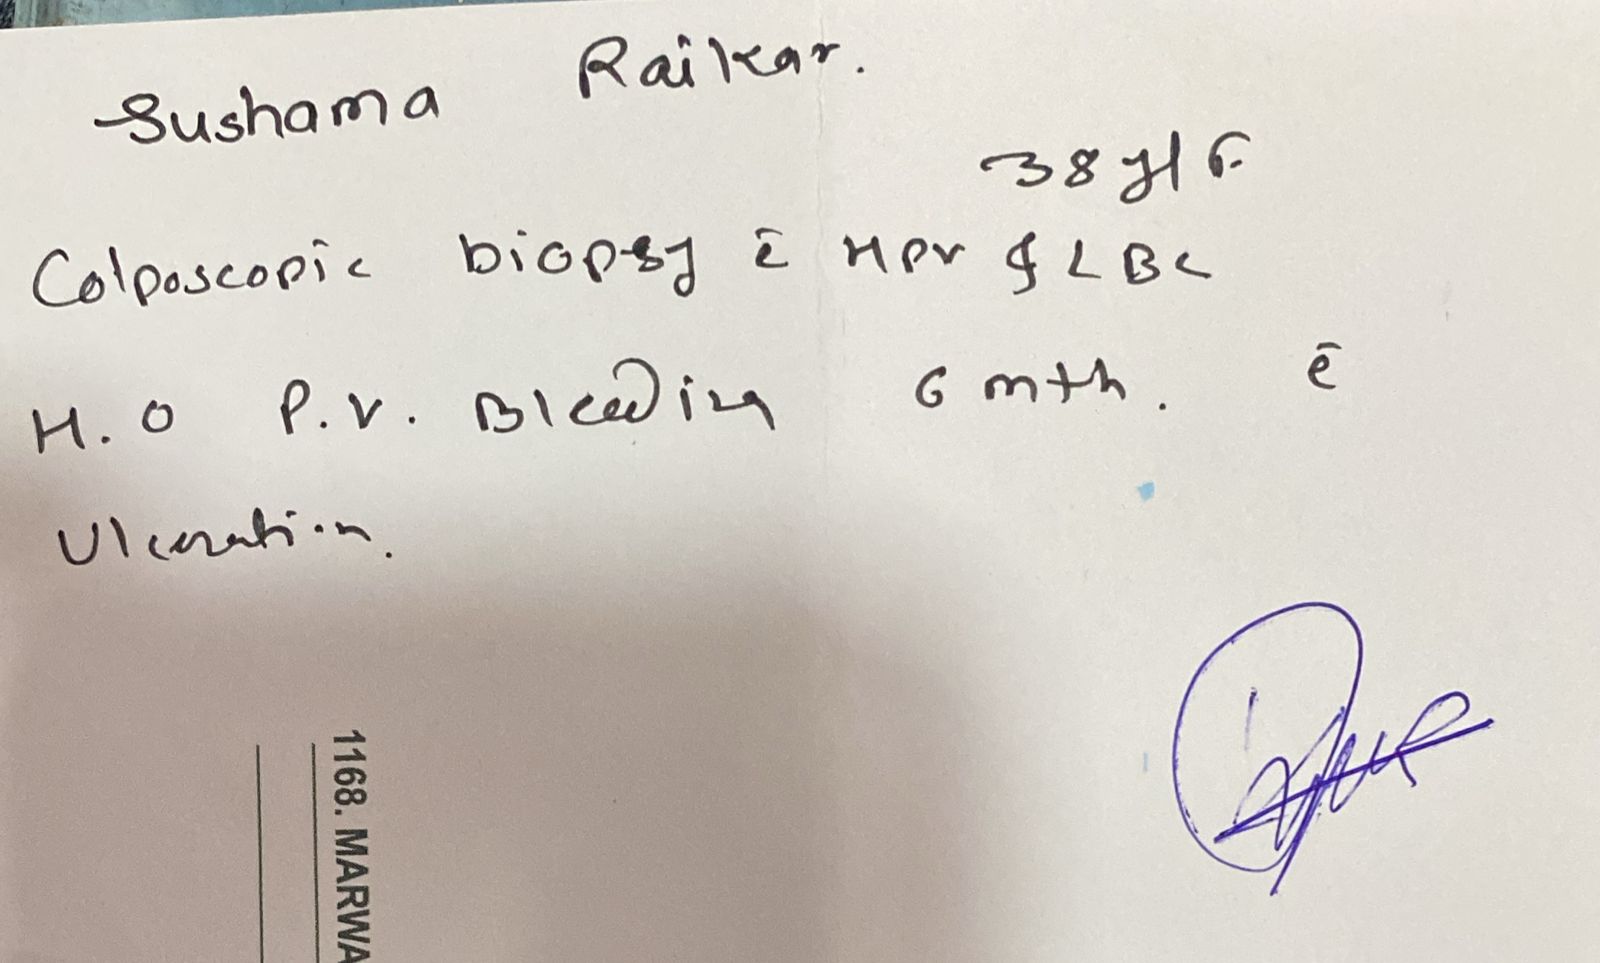 Sushama Raikar.
38 y/F.
Colposcopic biopsy c̄ HPV & LBC
H.O P.V. Bleeding 6 mth. c̄
Ulceration.
1168. MARWA